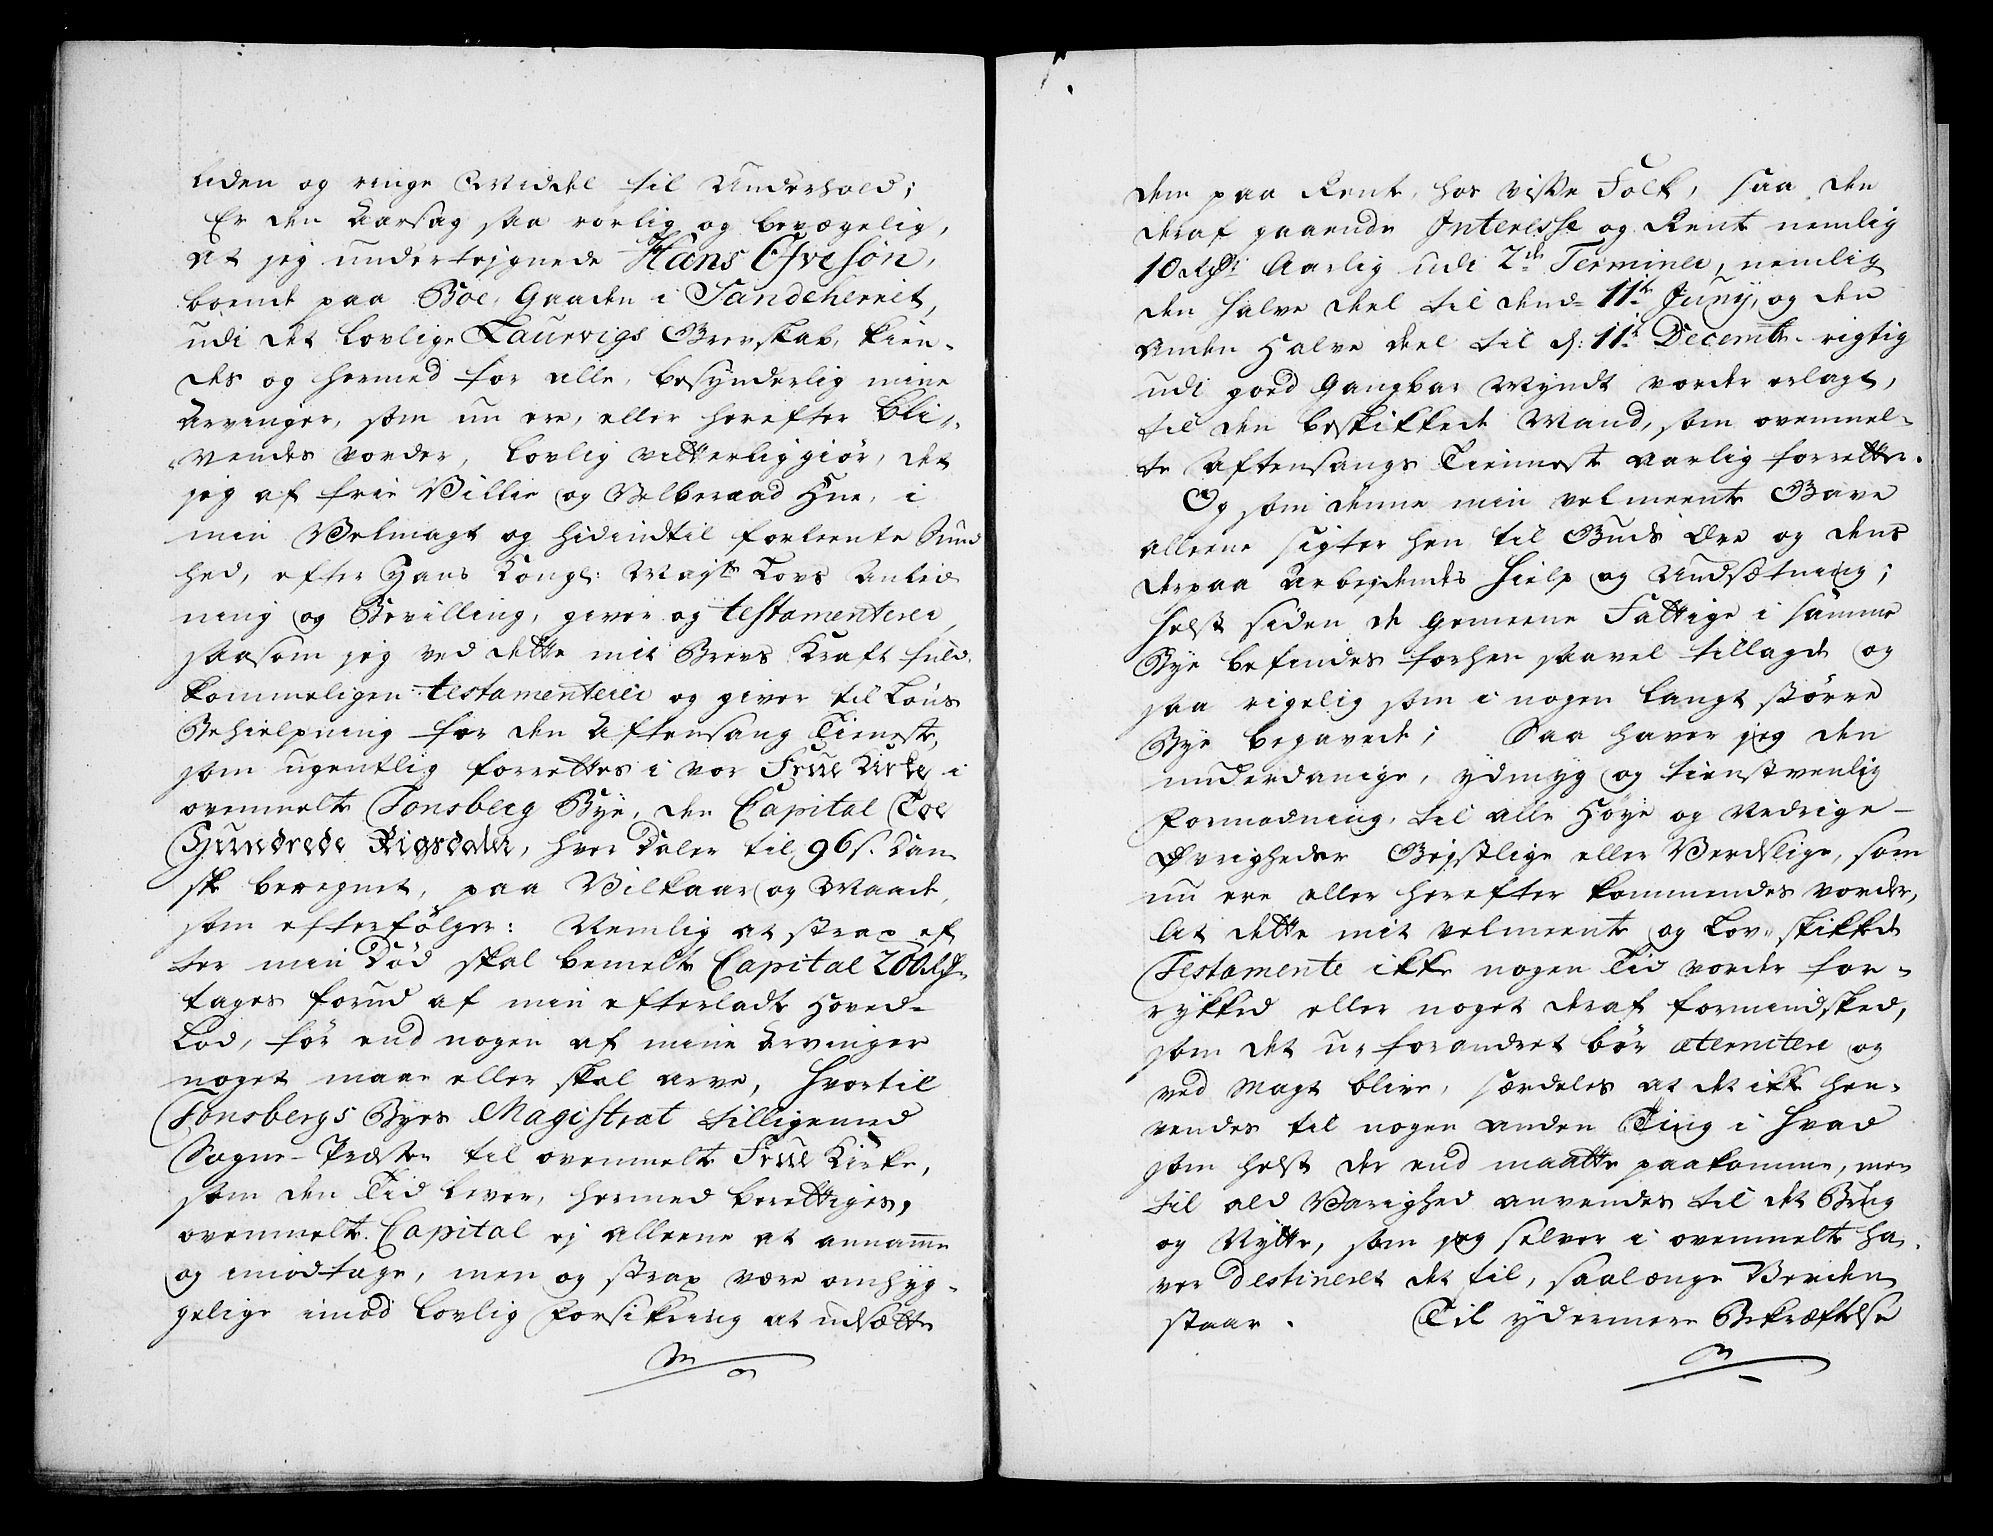 liden og ringe Middel til Underhold;
Er den Aarsag saa rørlig og bevægelig,
at jeg undertegnede Hans Ofvesøn,
boende paa Boe, Gaarden i Sandeherret,
udi det lovlige Laurvigs Grevskab, kien-
des og hermed for alle, besynderlig mine
Arvinger, som nu ere, eller herefter bli-
vendes vorder, lovlig vitterlig giør, det
jeg af frie Villie og Velberaad Hue, i
min Velmagt og hidindtil forleente Sund
hed, efter Hans Kongl: Mayts Lovs Anled
ning og Bevilling, giver og testamenterer,
saasom jeg ved dette mit Brevs Kraft fuld-
kommeligen testamenterer og giver til Løns
Behielpning for den Aftensang Tieneste,
som ugentlig forrettes i vor Frue Kirke i
ovenmelte Tonsberg Bye, den Capital Toe
Hundrede Rigsdaler, hver Daler til 96 s. Dan
sk beregnet, paa Vilkaar og Maade,
som efterfølger: Nemlig at strax ef
ter min Død skal bemelte Capital 200 Rdr
tages forud af min efterladte Hoved-
Lod, før end nogen af mine Arvinger
noget maae eller skal arve, hvortil
Tonsbergs Byes Magistrat tilligemed
Sogne-Præsten til ovenmelte Frue Kirke,
som den Tid lever, hermed berettiges,
ovenmelte Capital ej alleene at annamme
og imodtage, men og strax være omhyg-
gelige imod lovlig Forsikring at udsætte
dem paa Rente, hos visse Folk, saa den
deraf gaaende Interesse og Rente nemlig
10 Rdr Aarlig udi 2de Terminer, nemlig
den halve deel til dend 11te Junij, og den
anden Halve deel til d: 11te Decemb. rigtig
udi goed Gangbar Myndt vorder erlagt,
til den beskikkede Mand, som ovenmel-
te Aftensangs Tienneste aarlig forretter.
Og som denne min velmeente Gave
alleene sigter hen til Guds Ære og dens
derpaa Arbejdendes Hielp og Undsætning;
Helst siden de gemeene Fattige i samme
Bye befindes forhen saavel tillagde og
saa rigelig som i nogen langt større
Bye begavede; Saa haver jeg den
underdanige, ydmyg og tienstvenlig
Formodning, til alle Høye og Nedrige
Øvrigheder Gejstlige eller Verdslige, som
nu ere eller herefter kommendes vorder,
At dette mit velmeente og Lov-skikkede
Testamente ikke nogen Tid vorder for-
rykked eller noget deraf formindsked,
som det u-forandret bør æternitere og
ved Magt blive, særdeles at det ikke hen-
vendes til nogen anden Ting i hvad
som helst der end maatte paakomme, men
til ald Varighed anvendes til det Brug
og Nytte, som jeg selver i ovenmelte ha-
ver destineret det til, saalænge Verden
staar. Til ydermere Bekræftelse